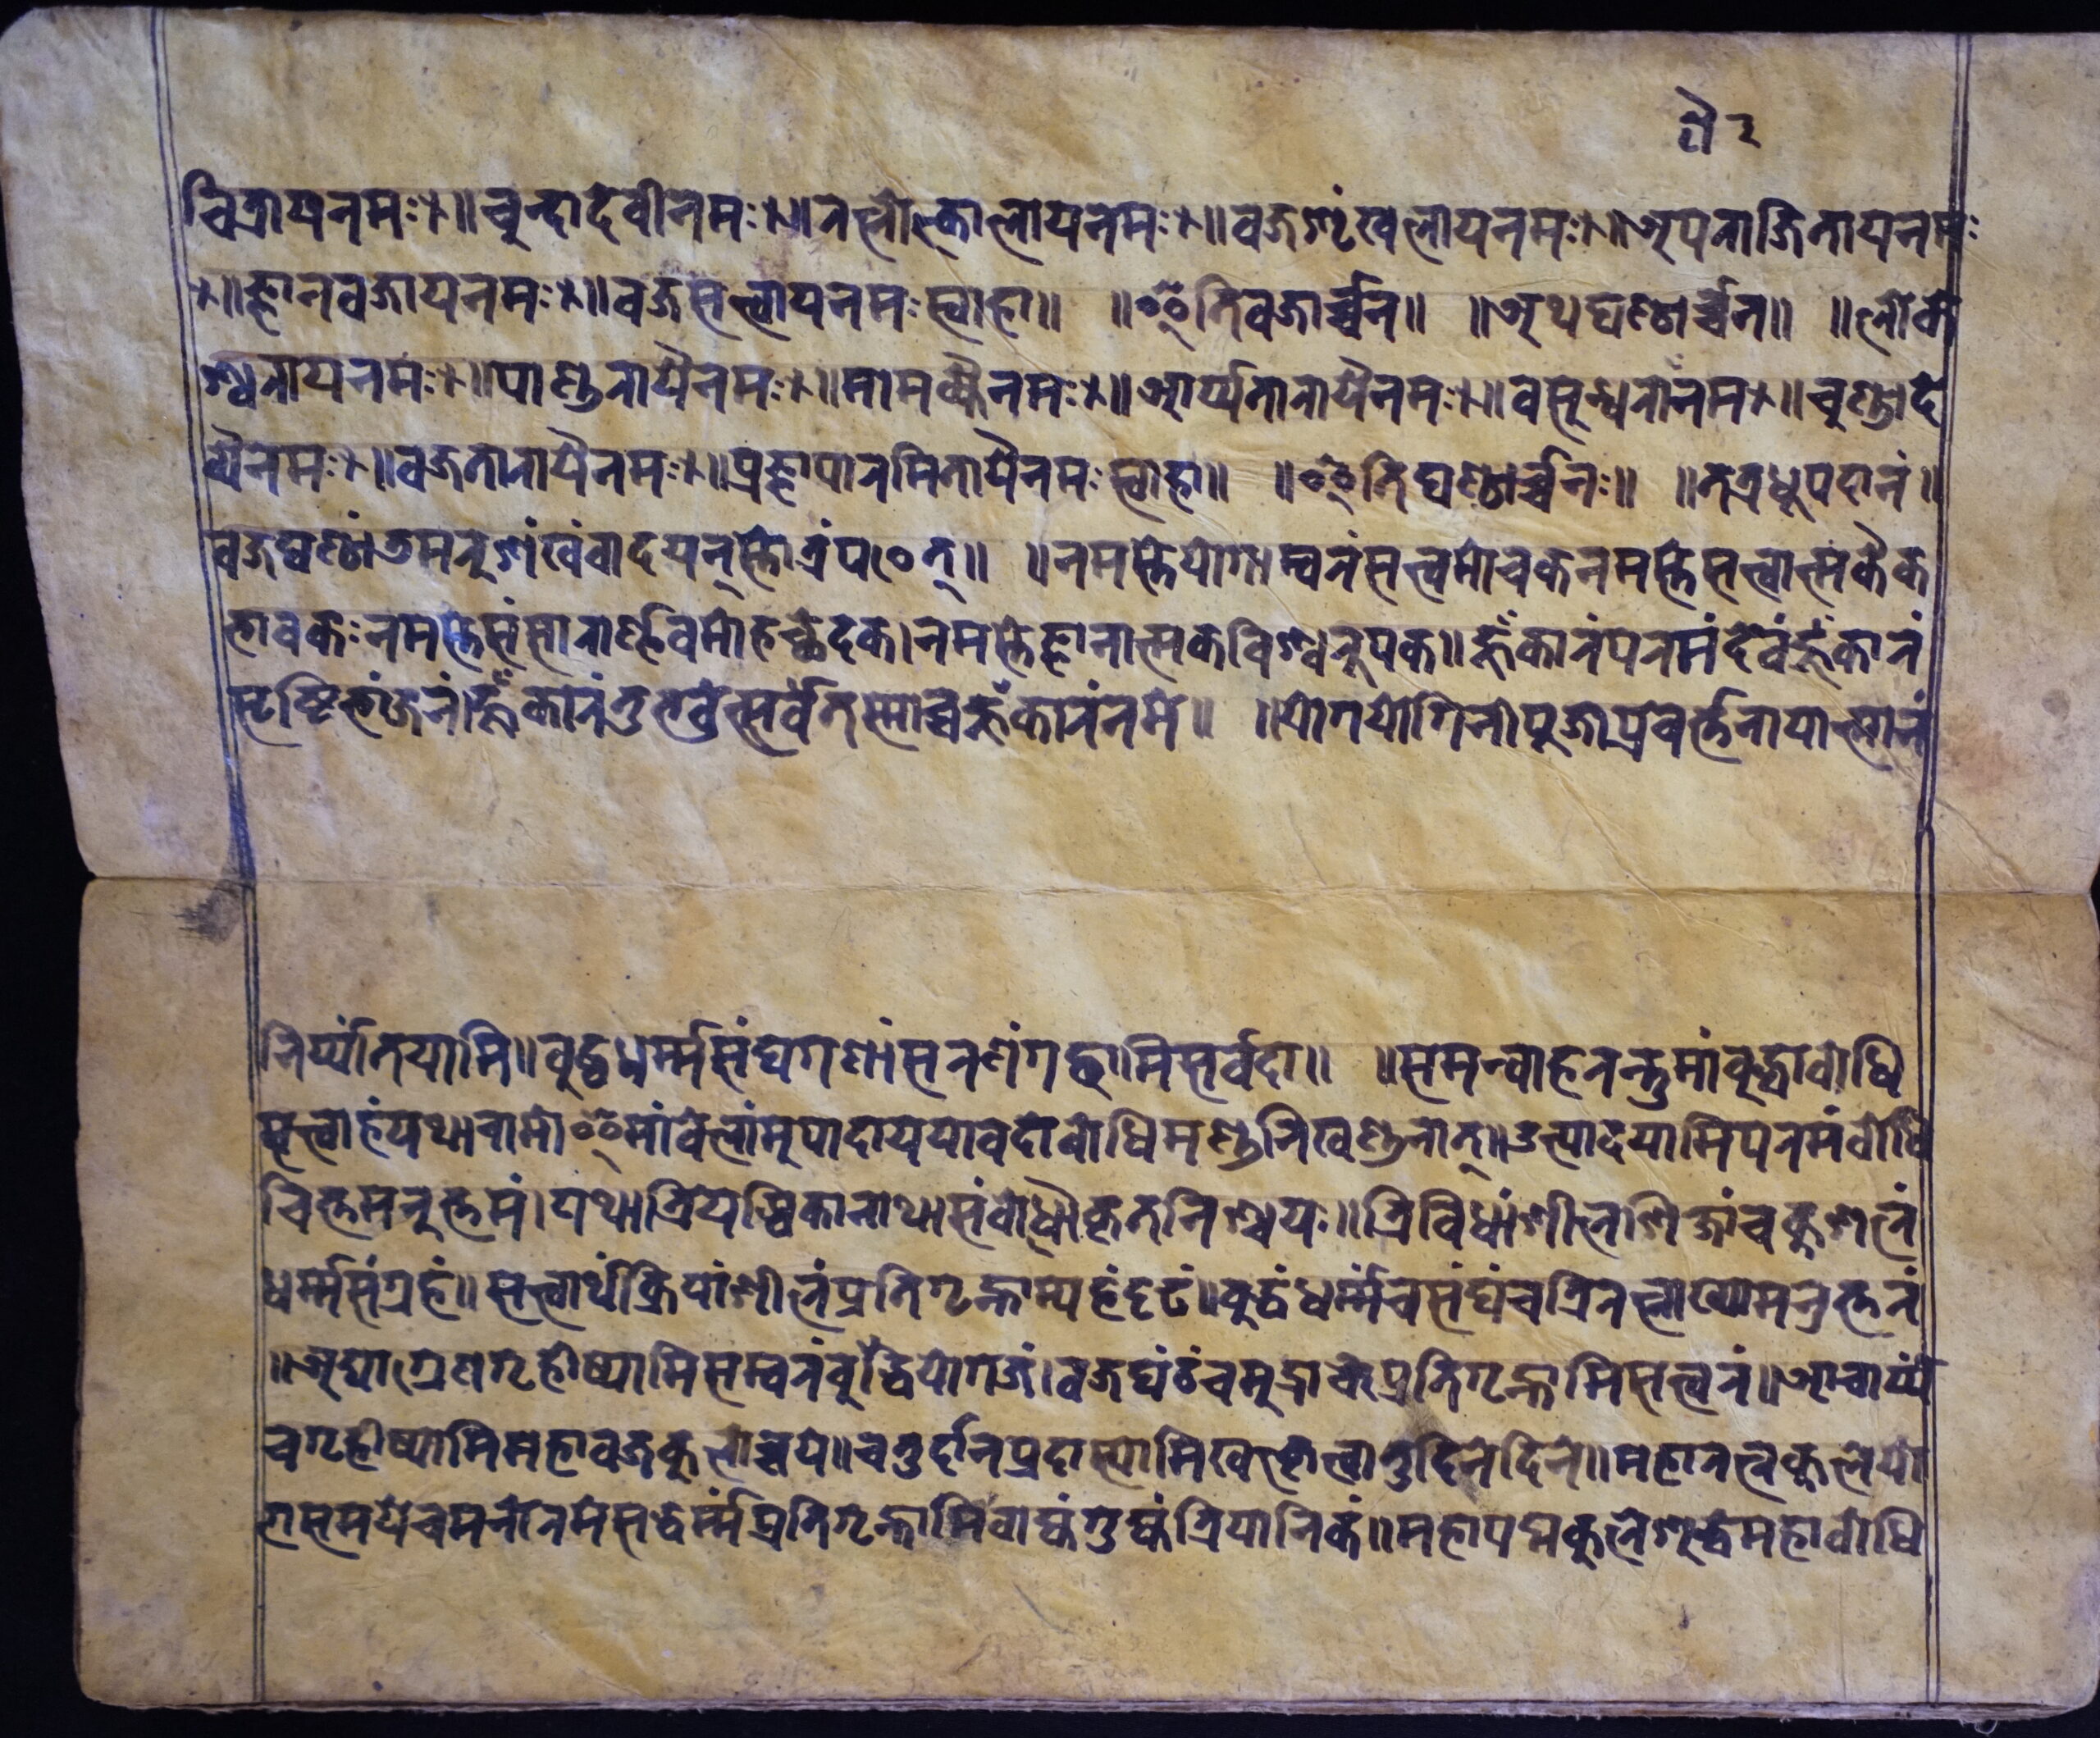 चित्रायनमः॥चुन्दादेवीनमः॥रत्नोल्कालायनमः॥वज्रशृंखलायनमः॥अपराजितायनमः
॥ज्ञानवज्रायनमः॥वज्रसत्त्वायनमःस्वाहा॥ ॥इतिवज्रार्च्चन॥ ॥अथघण्ठार्च्चन॥ ॥लोके
श्वरायनमः॥पाण्डुरायैनमः॥मामक्यैनमः॥आर्य्यतारायैनमः॥वसुन्धरानम॥चुण्डादे
व्यैनमः॥वज्रतारायैनमः॥प्रज्ञापारमितायैनमःस्वाहा॥ ॥इतिघण्ठार्च्चनः॥ ॥तत्रधूपदानं॥
वज्रघण्ठांडमरुशंखंवादयन्स्तोत्रंपठेत्॥ ॥नमस्तेयोगाम्वरंसत्त्वमोचकनमस्तेसत्त्वात्मकैक
भावकःनामस्तेसंसारार्ण्णवमोहच्छेदक।नमस्तेज्ञानात्मकविश्वरूपक॥हूँकारंपरमंदेवंहूँकारं
सृष्टिभांजनं।हूँकारंतुभ्वंत्सर्वेतस्माच्चहूँकारंनमे॥ ॥योगयोगिनीपूजाप्रवर्त्तनायात्मानं
निर्य्यातयामि॥वुद्धधर्म्मसंघगणांसरणंगच्छामिसर्वदा॥ ॥समन्वाहरन्तुमांवुद्धावोधि
सत्त्वाहंयथानामोइमांवेलांमुपादाययावदोवोधिमण्डनिखण्डनात्॥उत्पादयामिपरमंवोधि
चित्तमनुत्तमं।यथात्रियध्विकानाथासंवोधौकृतनिश्चयः॥त्रिविधांशीलशिक्षांचकुशलं
धर्म्मसंग्रहं॥सत्त्वार्थक्रियांशीलंप्रतिगृह्नाम्यहंदृढं॥वुद्धंधर्म्मंचसंघंचत्रिरत्नाख्यामनुत्तरं
॥अद्याग्रेणगृहीष्यामिसम्वरंवुद्धैयोगजं।वज्रघंठंचमुद्राकंप्रतिगृह्नामिसत्त्वरं॥आचार्य्यं
चगृहीष्यामिमहावज्रकुलोच्चये॥चतुर्दानप्रदास्यामिखत्कृत्वातुदिनेदिने॥महारत्नकुलेयो
गसमयेचमनोरमेसद्धर्म्मंप्रतिगृह्नामिवाह्यंगुह्यंत्रियानिकं॥महापद्मकुलेशुद्धेमहावोधि